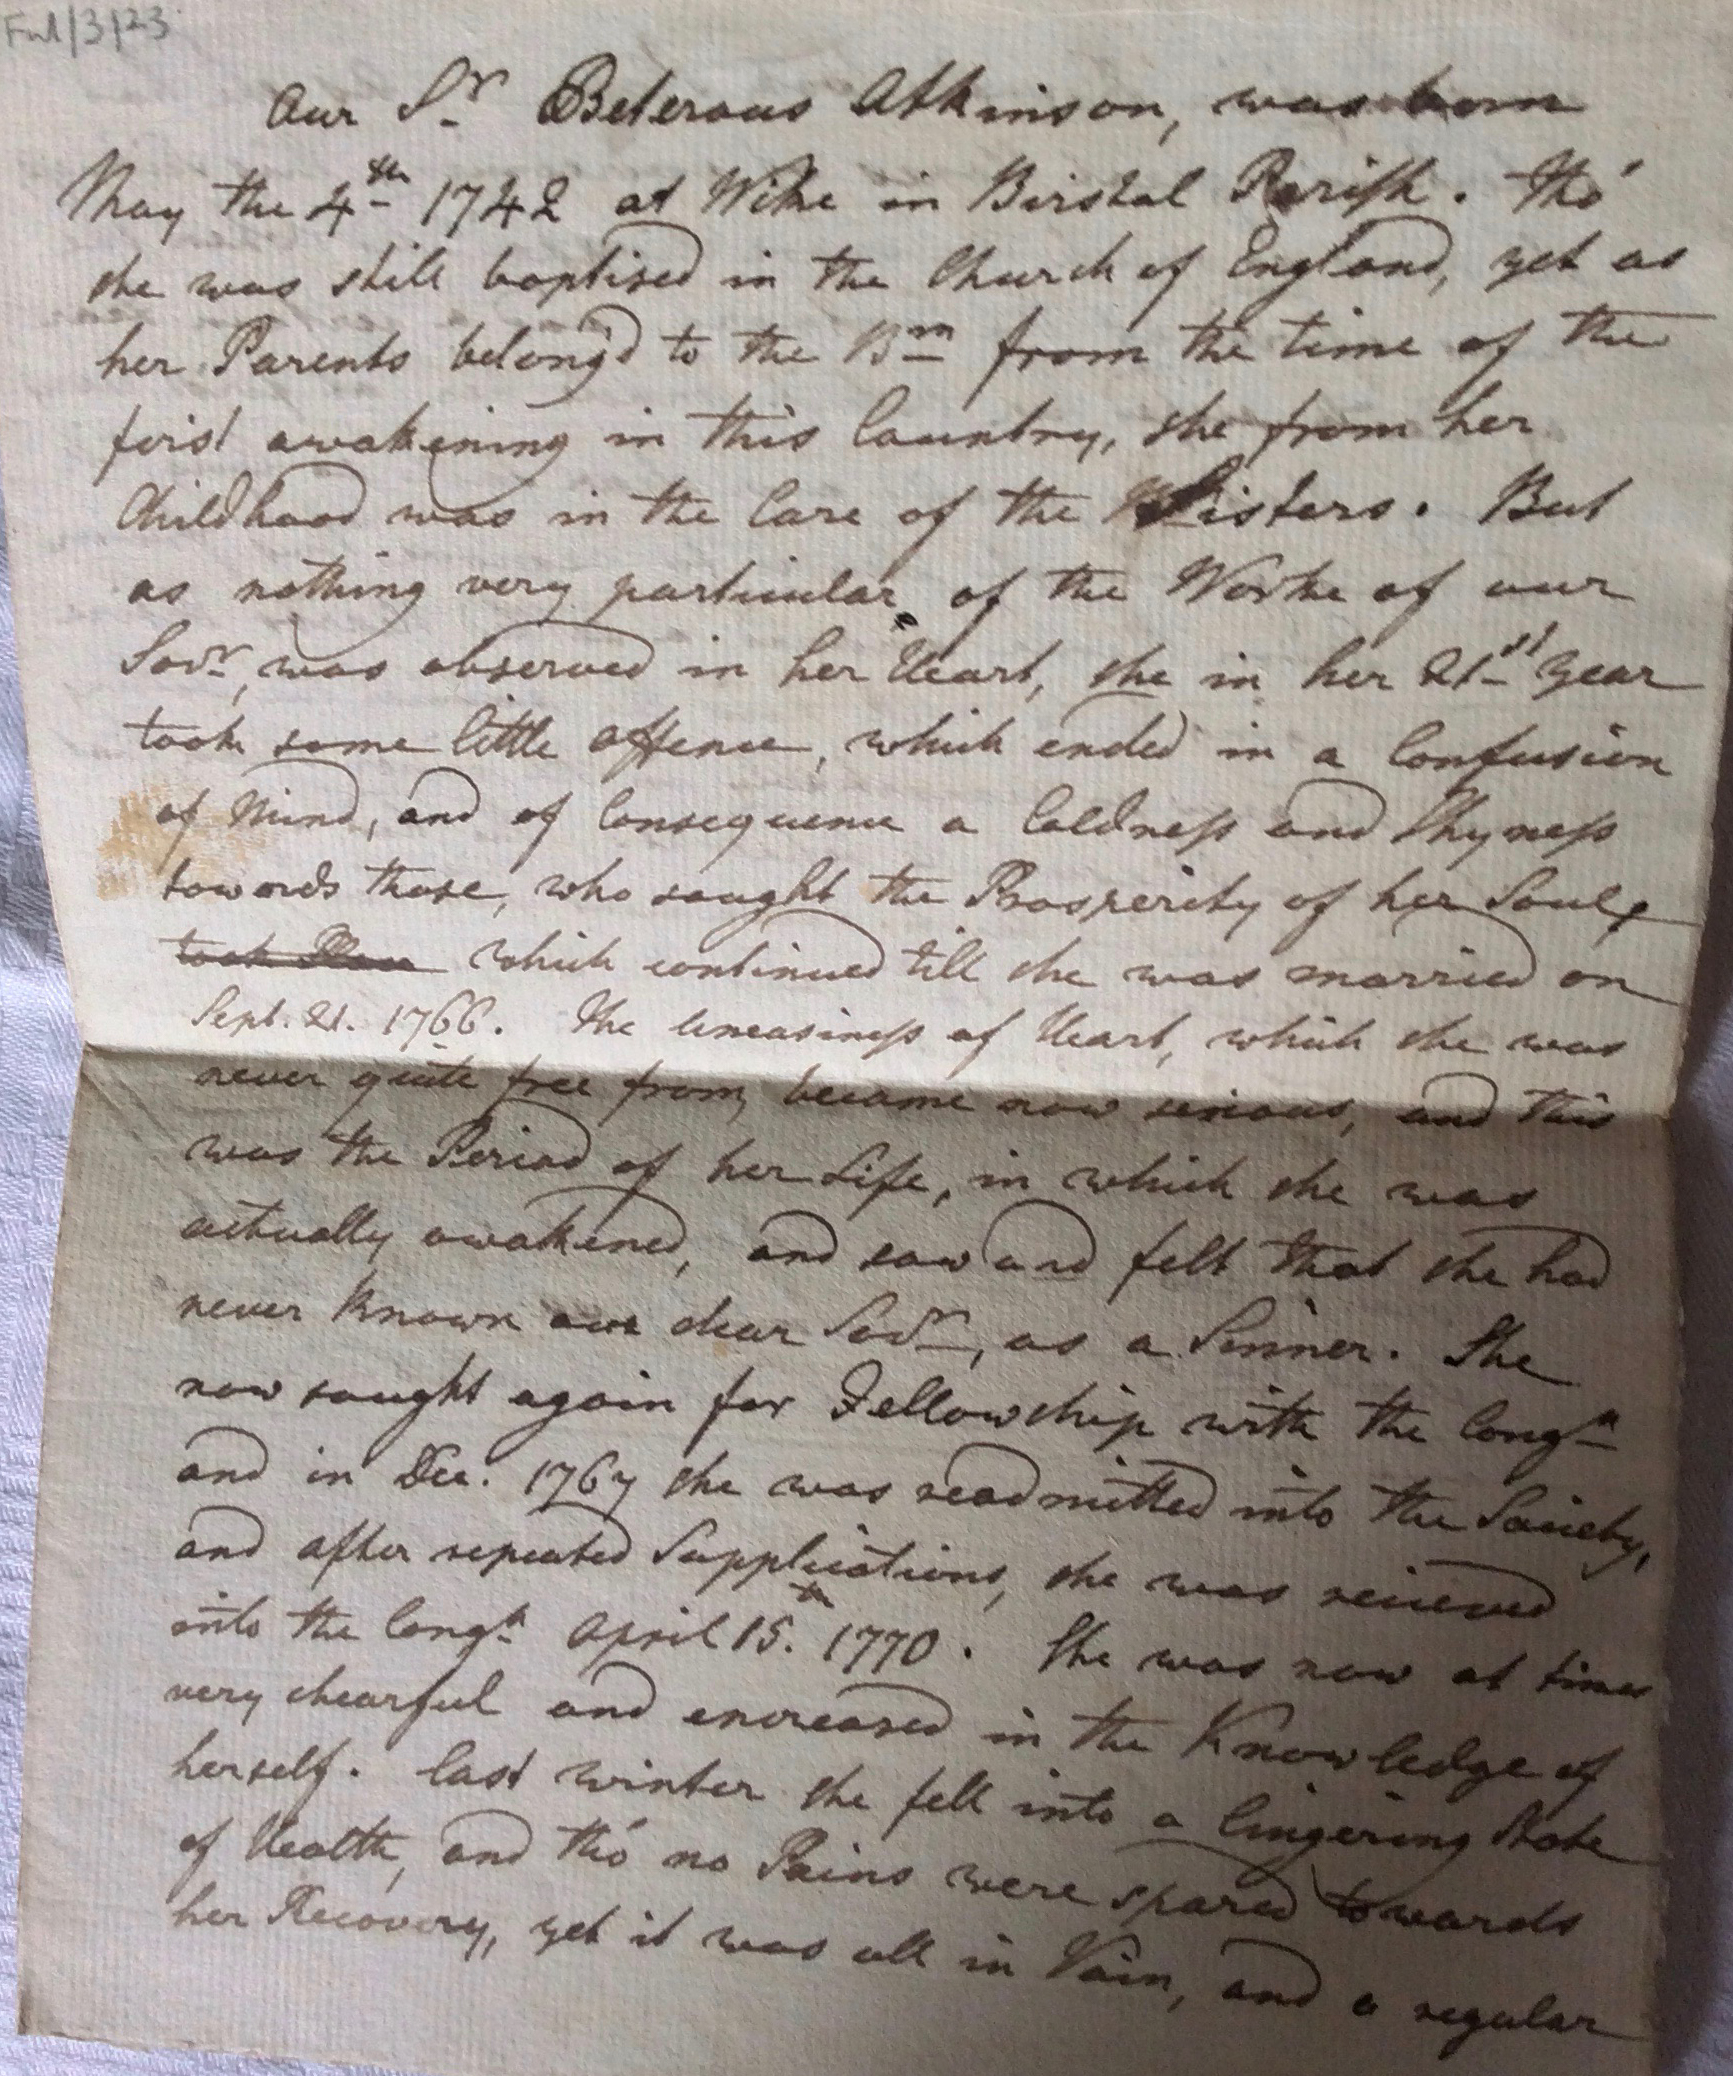 Ful/3/23
Our Sr Beterous Atkinson, was born
May the 4th 1742 at Wike in Birstal Parish. Tho'
she was still baptised in the Church of England, yet as
her Parents belong'd to the Brn from the time of the
first awakening in this Country, she from her
Childhood was in the Care of the Sisters. But
as nothing very particular of the Worke of our
Savr, was observed in her Heart, she in her 21st Year
took some little offence, which ended in a Confusion
of Mind, and of Consequence a Coldness and Shyness
towards those, who sought the Prosperity of her Soul,
took Place which continued till she was married on
Sept. 21. 1766. The Uneasiness of Heart, which she was
never quite free from, became now serious, and this
was the Period of her Life, in which she was
actually awakened, and saw and felt that she had
never known our dear Savr, as a Sinner. She
now sought again for Fellowship with the Congn
and in Dec. 1767 she was readmitted into the Society,
and after repeated Supplications, she was received
into the Congn April 15.th 1770. She was now at times
very chearful and encreased in the Knowledge of
herself. Last winter she fell into a lingering State
of Health, and tho' no Pains were spared towards
her Recovery, yet it was all in Vain, and a regular